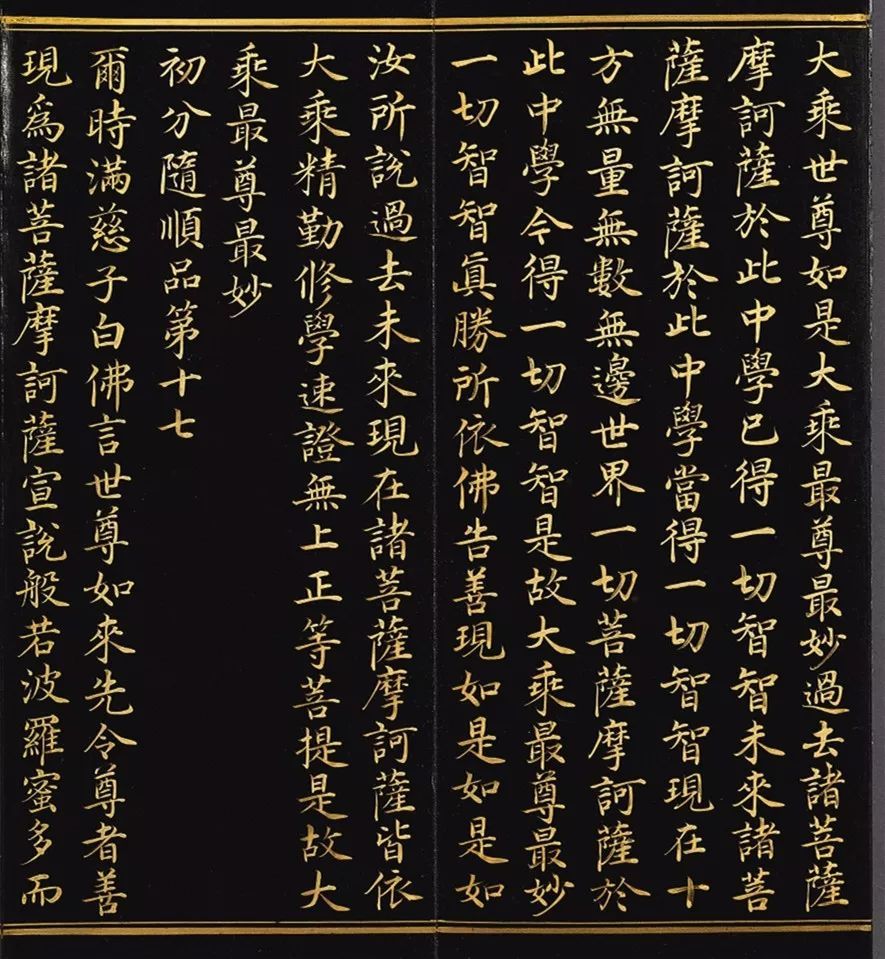 大乘世尊如是大乘最尊最妙過去諸菩薩
摩訶薩於此中學已得一切智智未來諸菩
薩摩訶薩於此中學當得一切智智現在十
方無量無數無邊世界一切菩薩摩訶薩於
此中學今得一切智智是故大乘最尊最妙
一切智智真勝所依佛告善現如是如是如
汝所說過去未來現在諸菩薩摩訶薩皆依
大乘精勤修學速證無上正等菩提是故大
乘最尊最妙
初分隨順品第十七
爾時滿慈子白佛言世尊如來先令尊者善
現為諸菩薩摩訶薩宣說般若波羅蜜多而